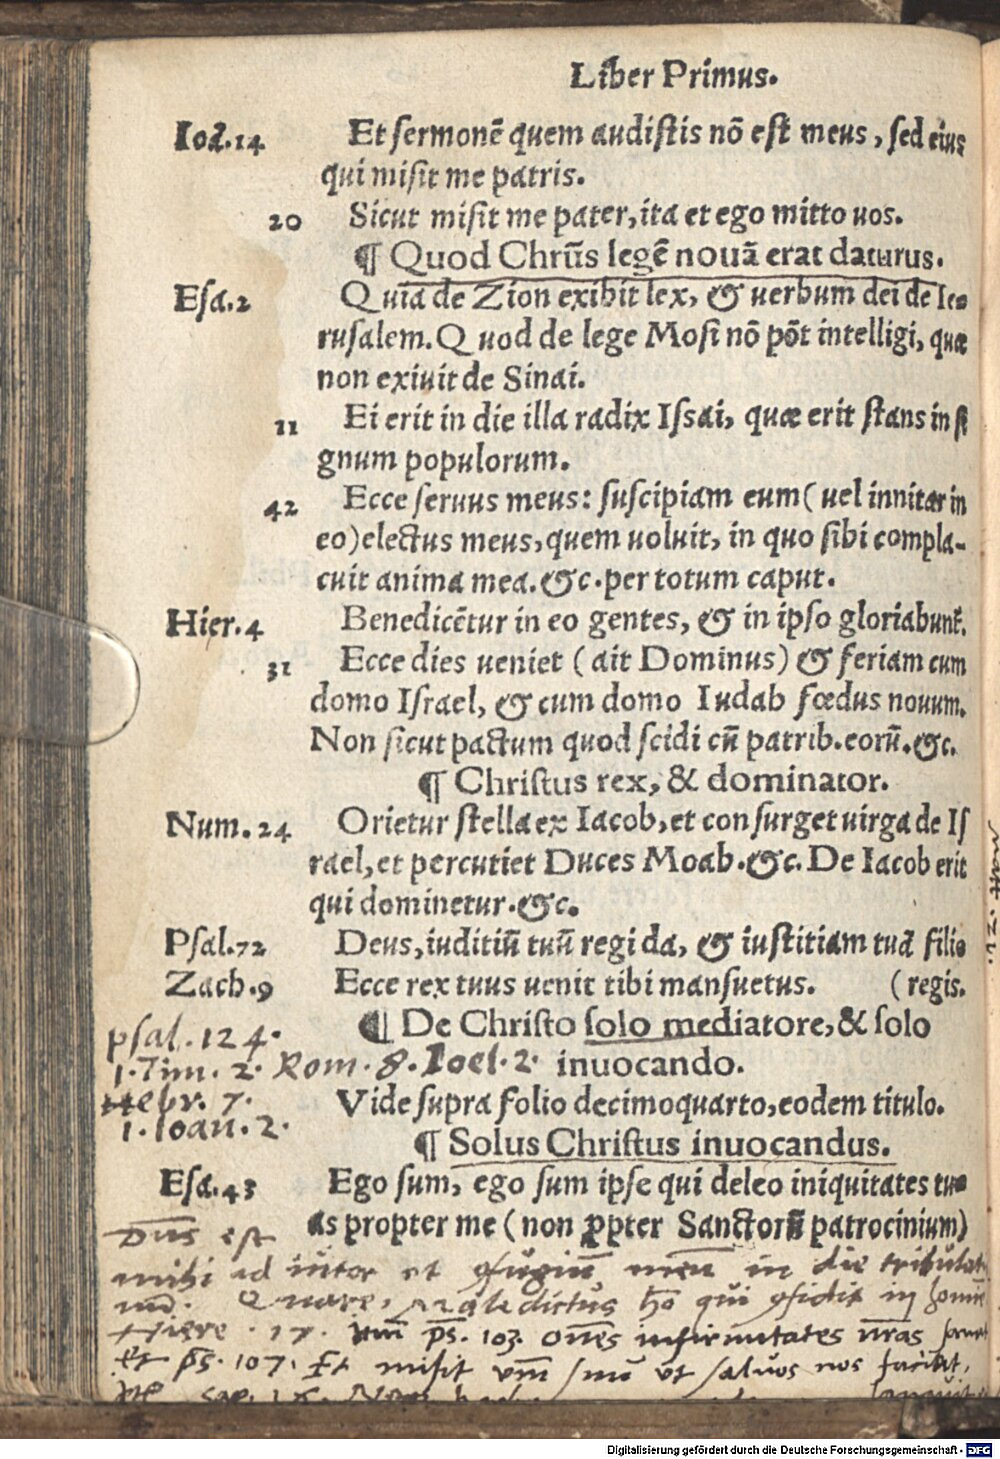 Liber Primus.
Ioā.14 Et sermonē quem audistis nō est meus, sed eius
qui misit me patris.
20 Sicut misit me pater, ita et ego mitto uos.
¶ Quod Chrūs legē nouā erat daturus.
Esa.2 Quia de Zion exibit lex, & uerbum dei de Ie-
rusalem. Quod de lege Mosi nō pōt intelligi, quæ
non exiuit de Sinai.
11 Ei erit in die illa radix Issai, quæ erit stans in si
gnum populorum.
42 Ecce seruus meus: suscipiam eum (uel innitar in
eo) electus meus, quem uoluit, in quo sibi compla-
cuit anima mea. &c. per totum caput.
Hier.4 Benedicētur in eo gentes, & in ipso gloriabunt̃.
31 Ecce dies ueniet (ait Dominus) & feriam cum
domo Israel, & cum domo Iudah fœdus nouum.
Non sicut pactum quod scidi cū patrib. eorū. &c.
¶ Christus rex, & dominator.
Num.24 Orietur stella ex Iacob, et consurget uirga de Is
rael, et percutiet Duces Moab. &c. De Iacob erit
qui dominetur. &c.
Psal.72 Deus, iuditiū tuū regi da, & iustitiam tuā filio
Zach.9 Ecce rex tuus uenit tibi mansuetus. (regis.
¶ De Christo solo mediatore, & solo
psal. 124.
1. Tim. 2. Rom. 8. Ioel. 2. inuocando.
Hebr. 7. Vide supra folio decimoquarto, eodem titulo.
1. Ioan. 2.
¶ Solus Christus inuocandus.
Esa.43 Ego sum, ego sum ipse qui deleo iniquitates tu-
as propter me (non ꝓpter Sanctorū patrocinium)
Dn̄s est
mihi adiutor et in die
Quare, Maledictus hō qui in
Hiere. 17. ps. 103. omēs infirmitates
et ps. 107. Et misit ut saluos nos faciat,
Digitalisierung gefördert durch die Deutsche Forschungsgemeinschaft - DFG